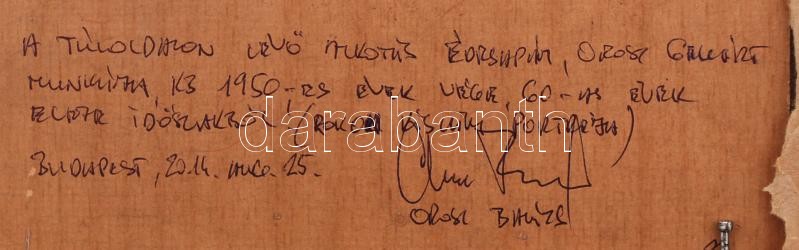 A TÚLOLDALON LEVŐ ALKOTÁS ÉDESAPÁM, OROSZ GELLÉRT
MUNKÁJA, KB 1950-ES ÉVEK VÉGE, 60-AS ÉVEK
ELEJE IDŐSZAKBÓL, PORTRÉJA)
BUDAPEST, 2014. AUG. 25.
OROSZ BALÁZS
darabanth